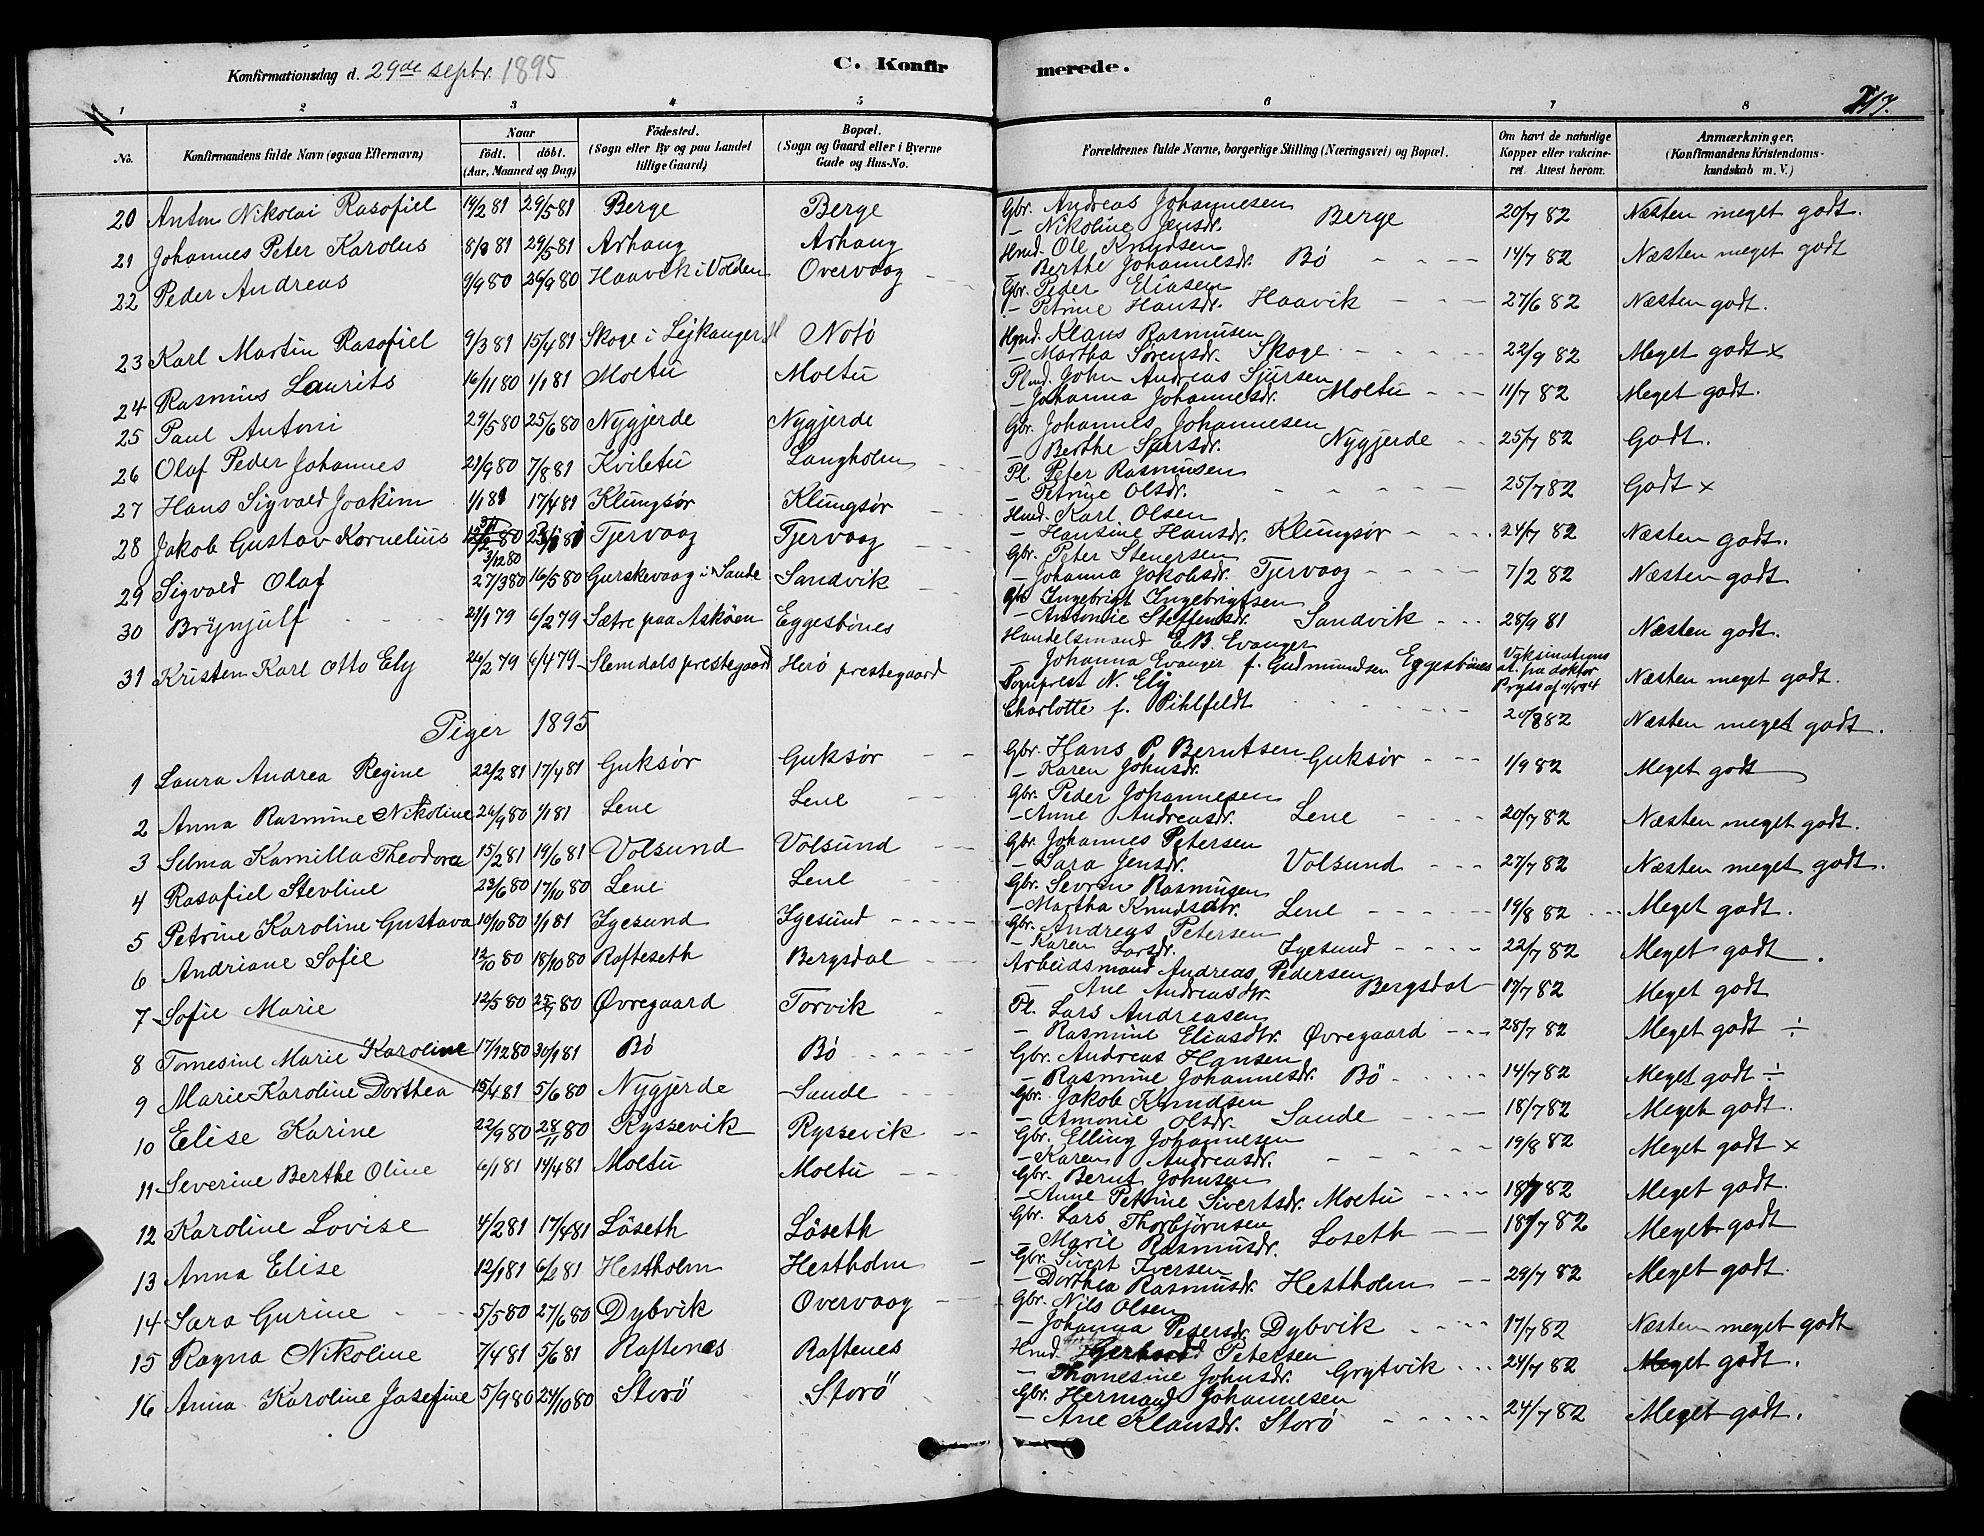 Konfirmationsdag d. 29de septbr. 1895
C. Konfirmerede.
217.
1 2 3 4 5 6 7 8
No. Konfirmandens fulde Navn (ogsaa Efternavn) Naar født. døbt. (Aar, Maaned og Dag) Födested. (Sogn eller By og paa Landet tillige Gaard) Bopæl. (Sogn og Gaard eller i Byerne Gade og Hus-No. Forældrenes fulde Navne, borgerlige Stilling (Næringsvei) og Bopæl. Om havt de naturlige Kopper eller vakcineret. Attest herom. Anmærkninger. (Konfirmandens Kristendomskundskab m. V.)
20 Anton Nikolai Rasofiel 19/2 81 29/5 81 Berge Berge Gbr. Andreas Johannesen – Nikoline Jensdr. Berge 20/7 82 Næsten meget godt.
21 Johannes Peter Karolus 8/3 81 29/5 81 Arhaug Arhaug Hmd. Ole Knudsen – Berthe Johannesdr. Bö 14/7 82 Næsten meget godt
22 Peder Andreas 9/9 80 26/9 80 Haavik i Volden Overvaag Gbr. Peder Eliasen – Petrine Hansdr. Haavik 27/6 82 Næsten godt.
23 Karl Martin Rasofiel 9/3 81 15/4 81 Skoge i Lejkanger Notö Hmd. Klaus Rasmusen – Martha Sørensdr. Skoge 22/9 82 Meget godt x
24 Rasmus Laurits 16/11 80 1/1 81 Moltu Moltu Plmd. John Andreas Sjursen – Johanna Johannesdr. Moltu 11/7 82 Meget godt.
25 Paul Antoni 29/5 80 25/6 80 Nygjerde Nygjerde Gbr. Johannes Johannesen – Berthe Sjursdr. Nygjerde 25/7 82 Godt.
26 Olaf Peder Johannes 21/9 80 7/8 81 Kviletu Langholm Pl. Peter Rasmusen – Petrine Olsdr. 25/7 82 Godt x
27 Hans Sigvald Joakim 1/1 81 17/4 81 Klungsør Klungsør Hmd. Karl Olsen – Hansine Hansdr. Klungsør 24/7 82 Næsten godt.
28 Jakob Gustav Kornelius 3/12 80 Tjervaag Tjervaag Gbr. Peter Stenersen – Johanna Jakobsdr. Tjervaag 7/2 82 Næsten godt
29 Sigvald Olaf 27/3 80 16/5 80 Gurskevaag i Sande Sandvik Gbr. Ingebrigt Ingebrigtsen – Antonie Steffensdr. Sandvik 28/9 81 Næsten godt.
30 Brynjulf 21/1 79 6/2 79 Sætre paa Asköen Eggesbönes Handelsmand E.B. Evanger – Johanna Evanger f. Gudmundsen Eggesbönes Vaksinations at. fra doktor Næsten meget godt.
31 Kristen Karl Otto Ely 26/2 79 6/4 79 Slemdals prestegaard Herö prestegaard Sogneprest N. Ely Charlotte f. Pihlfeldt 20/8 82 Næsten meget godt.
Piger 1895
1 Laura Andrea Regine 22/2 81 17/4 81 Guksør Guksør Gbr. Hans P. Berntsen – Karen Johnsdr. Guksør 1/9 82 Meget godt
2 Anna Rasmine Nikoline 26/9 80 1/1 81 Lene Lene Gbr. Peder Johannesen – Anne Andreasdr. Lene 20/7 82 Næsten meget godt.
3 Selma Kamilla Theodora 15/2 81 19/6 81 Volsund Volsund Gbr. Johannes Petersen – Sara Jensdr. Volsund 27/7 82 Næsten meget godt.
4 Rasofiel Stevline 23/6 80 17/10 80 Lene Lene Gbr. Sevrin Rasmusen – Martha Knudsdtr. Lene 19/8 82 Meget godt.
5 Petrine Karoline Gustava 10/10 80 1/1 81 Igesund Igesund Gbr. Andreas Petersen – Karen Larsdr. Igesund 22/7 82 Meget godt.
6 Andriane Sofie 12/10 80 18/10 80 Rafteseth Bergsdal Arbeidsmand Andreas Pedersen – Ane Andreasdtr. Bergsdal 17/7 82 Meget godt
7 Sofie Marie 12/5 80 25/7 80 Øvregaard Torvik Pl. Lars Andreasen – Rasmine Eliasdtr. Øvregaard 28/7 82 Meget godt ÷
8 Tomesine Marie Karoline 17/12 80 30/1 81 Bö Bö Gbr. Andreas Hansen – Rasmine Johannesdr. Bö 14/7 82 Meget godt ÷
9 Marie Karoline Dorthea 15/4 81 5/6 80 Nygjerde Sande Gbr. Jakob Knudsen – Antonie Olsdr. Sande 18/7 82 Meget godt.
10 Elise Karine 22/9 80 28/11 80 Ryssevik Ryssevik Gbr. Elling Johannesen – Karen Andreasdr. 19/8 82 Meget godt x
11 Severine Berthe Oline 6/1 81 14/4 81 Moltu Moltu Gbr. Bernt Johnsen – Anne Petrine Sivertsdr. Moltu 18/7 82 Meget godt.
12 Karoline Lovise 4/2 81 17/4 81 Löseth Löseth Gbr. Lars Thorbjørnsen – Marie Rasmusdr. Loseth 18/7 82 Meget godt
13 Anna Elise 12/1 81 6/2 81 Hestholm Hestholm Gbr. Sivert Iversen – Dorthea Rasmusdr. Hestholm 29/7 82 Meget godt.
14 Sara Gurine 5/5 80 27/6 80 Dybvik Overvaag Gbr. Nils Olsen – Johanna Pedersdr. Dybvik 17/7 82 Næsten meget godt
15 Ragna Nikoline 7/4 81 5/6 81 Raftenes Raftenes Hmd. Gerhard Petersen – Thomesine Johnsdr. Grytvik 24/7 82 Meget godt.
16 Anna Karoline Josefine 5/9 80 24/10 80 Storö Storö Gbr. Hermand Johannesen – Ane Klausdr. Storö 24/7 82 Meget godt.